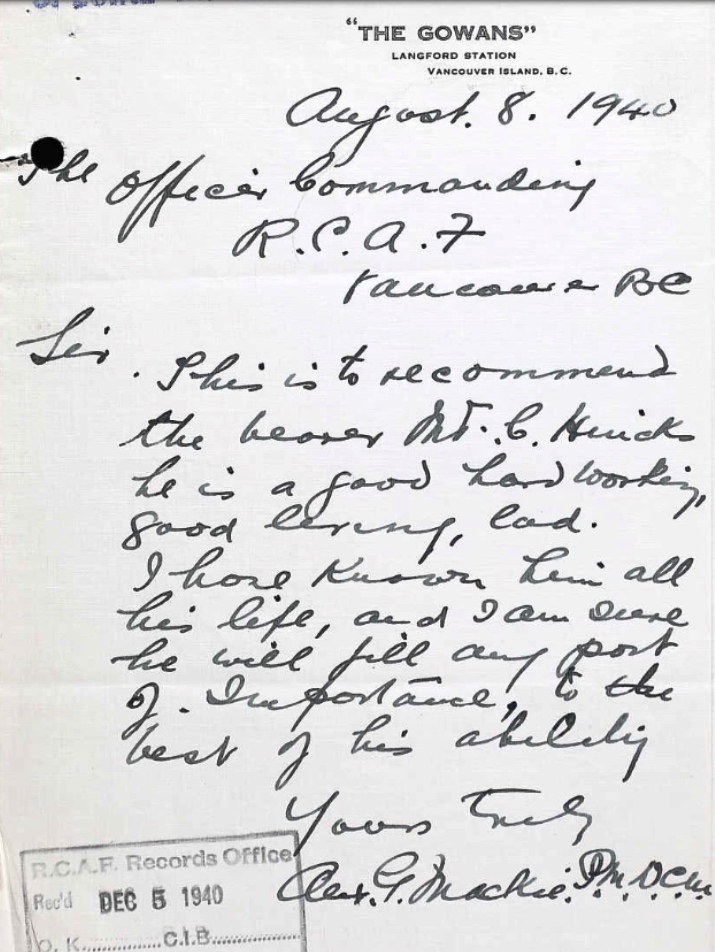 "THE GOWANS"
LANGFORD STATION
VANCOUVER ISLAND, B.C.
August. 8. 1940
The Officer Commanding
R.C.A.F
Vancouver BC
Sir
. This is to recommend
the bearer Mr. C. Hincks
he is a good hard working,
good living, lad.
I have Known him all
his life, and I am sure
he will fill any post
of. Importance, to the
best of his ability
Yours Truly
Alex. G. Mackie. P.M. D.C.M.
R.C.A.F. Records Office
Rec'd DEC 5 1940
O. K. ............ C.I.B. ............